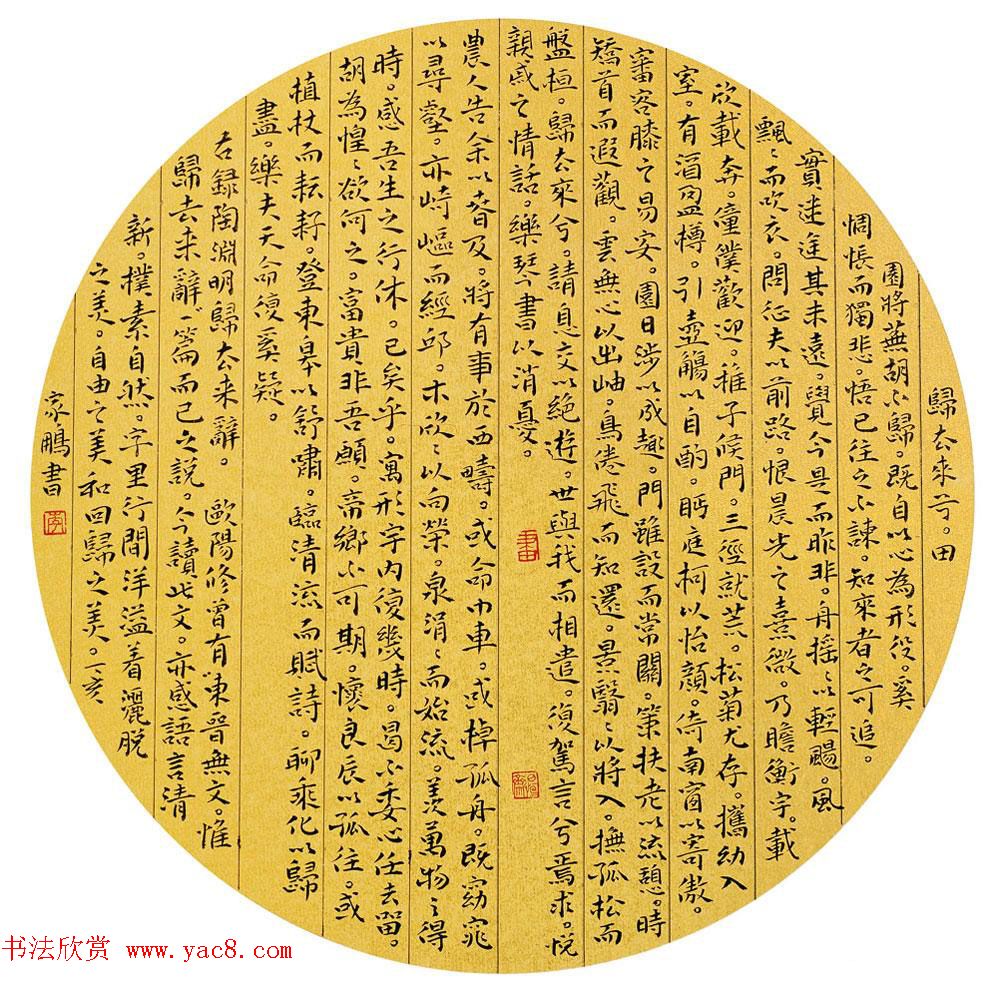 歸去來兮。田
園將蕪胡不歸。既自以心為形役。奚
惆悵而獨悲。悟已往之不諫。知來者之可追。
實迷途其未遠。覺今是而昨非。舟摇〻以輕颺。風
飄〻而吹衣。問征夫以前路。恨晨光之熹微。乃瞻衡宇。載
欣載奔。僮僕歡迎。稚子候門。三徑就荒。松菊尤存。攜幼入
室。有酒盈樽。引壺觴以自酌。眄庭柯以怡顏。倚南窗以寄傲。
審容膝之易安。園日涉以成趣。門雖設而常關。策扶老以流憩。時
矯首而遐觀。雲無心以出岫。鳥倦飛而知還。景翳〻以將入。撫孤松而
盤桓。歸去來兮。請息交以絕遊。世與我而相遺。復駕言兮焉求。悅
親戚之情話。樂琴書以消憂。
農人告余以春及。將有事於西疇。或命巾車。或棹孤舟。既窈窕
以尋壑。亦崎嶇而經邱。木欣〻以向榮。泉涓〻而始流。羨萬物之得
時。感吾生之行休。已矣乎。寓形宇內復幾時。曷不委心任去留。
胡為惶〻欲何之。富貴非吾願。帝鄉不可期。懷良辰以孤往。或
植杖而耘耔。登東皋以舒嘯。臨清流而賦詩。聊乘化以歸
盡。樂夫天命復奚疑。
右録陶淵明歸去来辭。歐陽修曾有東晉無文。惟
歸去来辭一篇而已之說。今讀此文。亦感語言清
新。樸素自然。字里行間洋溢着灑脫
之美。自由之美和回歸之美。丁亥
家鵬書
书法欣赏 www.yac8.com